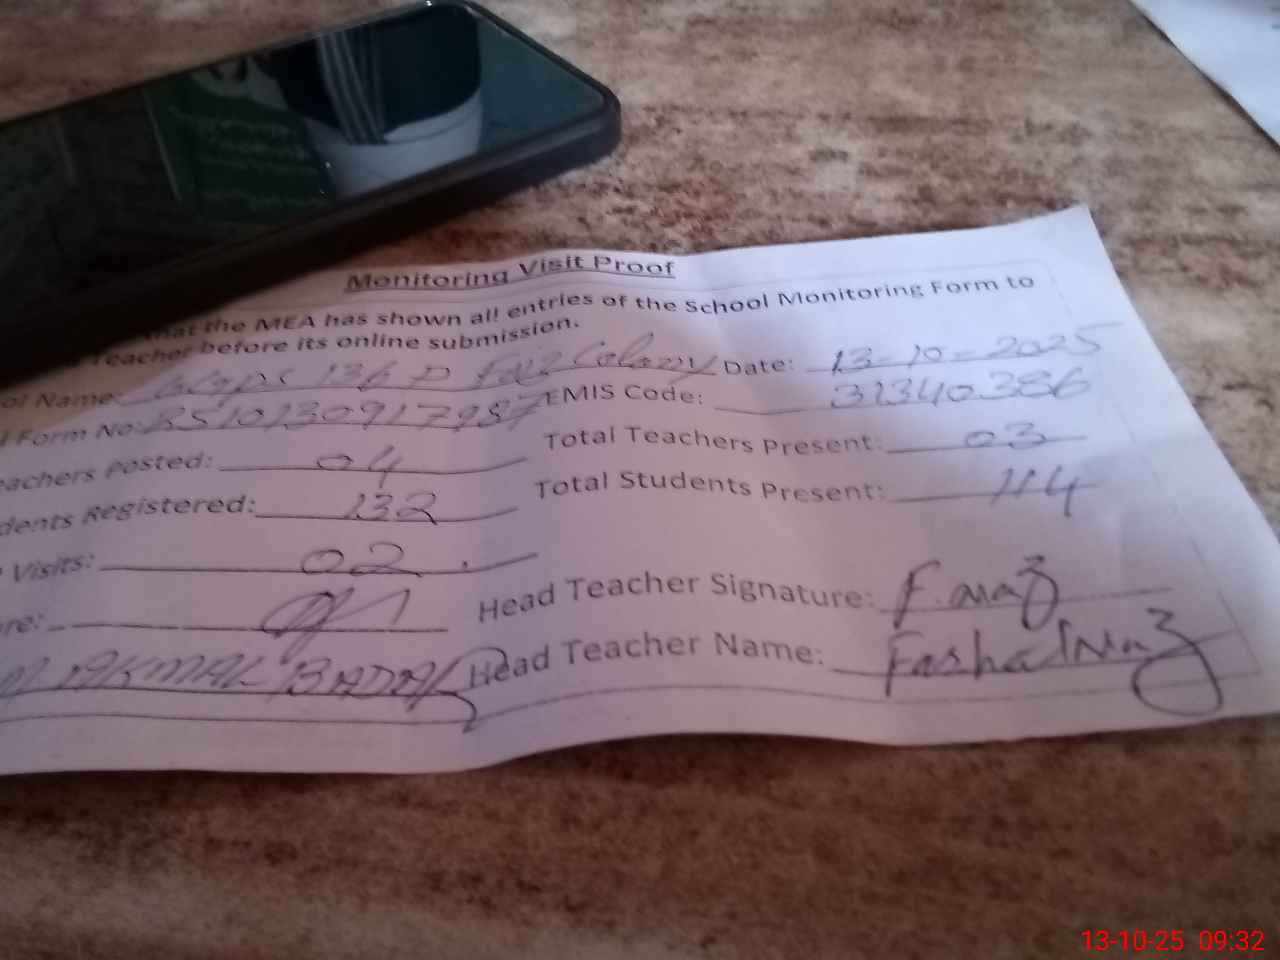 Monitoring Visit Proof
that the MEA has shown all entries of the School Monitoring Form to
Teacher before its online submission.
ol Name: 136 P Faiz Colony Date: 13-10-2025
Form No: EMIS Code: 31340386
eachers Posted: 04 Total Teachers Present: 03
dents Registered: 132 Total Students Present: 114
Visits: 02
re: Head Teacher Signature: F. Naz
M. AKMAL BADAR Head Teacher Name: Farhat Naz
13-10-25 09:32